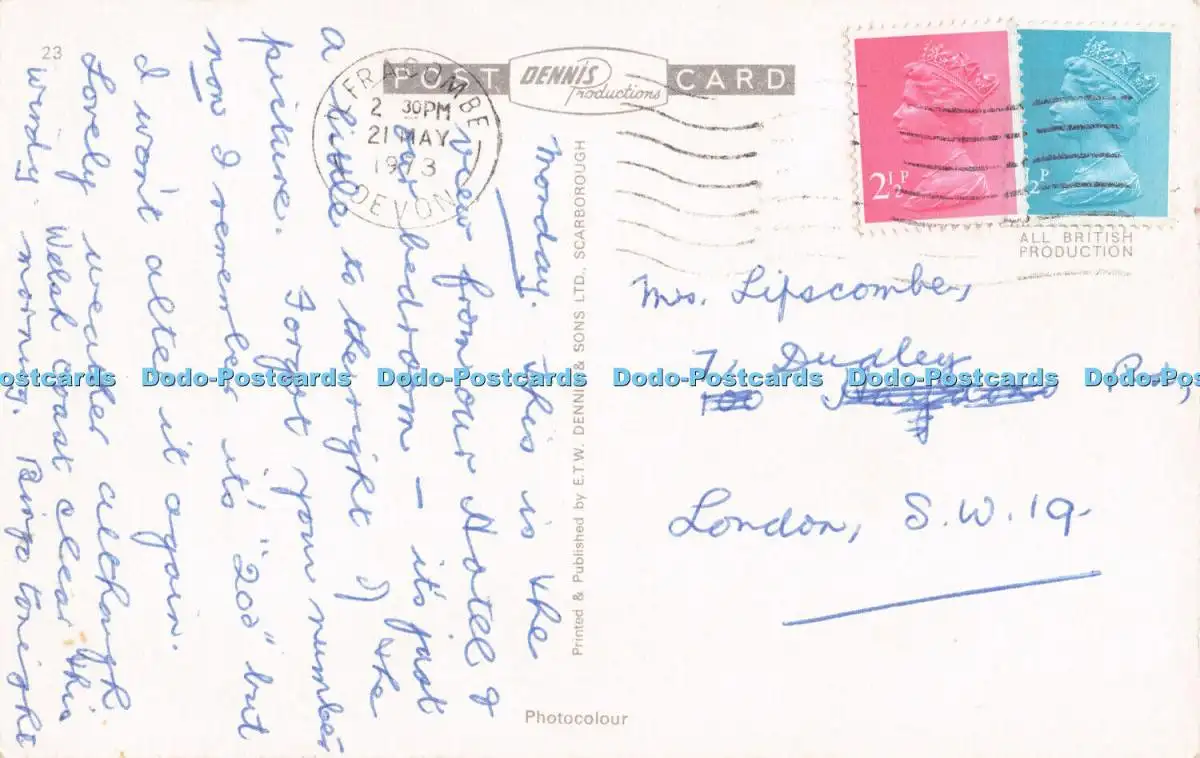 23
POST CARD
DENNIS
Productions
ILFRACOMBE
2 30PM
21 MAY
1973
DEVON
2½P
½P
ALL BRITISH
PRODUCTION
Monday. This is the
view from our Hotel &
our bedroom - it's just
a little to the right of the
picture. Forgot your number
now I remember its "202" but
I won't alter it again.
Lovely weather although
Welsh coast clear this
windy morning. Ring tonight
Printed & Published by E.T.W. DENNIS & SONS LTD., SCARBOROUGH
Mrs. Lipscombe,
Dudley Rd,
100
London, S.W.19.
Photocolour
Dodo-Postcards Dodo-Postcards Dodo-Postcards Dodo-Postcards Dodo-Postcards Postcards